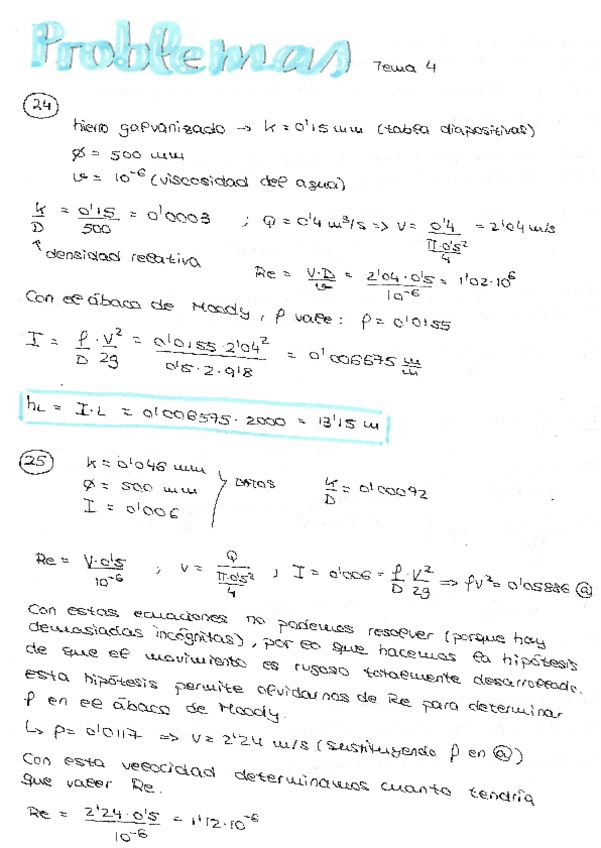 Problemas Tema 4
24
hierro galvanizado → k = 0'15 mm (tabla diapositivas)
ø = 500 mm
ν = 10⁻⁶ (viscosidad del agua)
k/D = 0'15/500 = 0'0003 ; Q = 0'4 m³/s => V = 0'4/(π·0'5²/4) = 2'04 m/s
↑ densidad relativa
Re = V·D/ν = 2'04·0'5/10⁻⁶ = 1'02·10⁶
Con el ábaco de Moody, f vale: f = 0'0155
I = f/D · V²/2g = 0'0155·2'04²/0'5·2·9'8 = 0'006575 m/m
hL = I·L = 0'006575·2000 = 13'15 m
25
k = 0'046 mm
ø = 500 mm } DATOS k/D = 0'00092
I = 0'006
Re = V·0'5/10⁻⁶ ; V = Q/(π·0'5²/4) ; I = 0'006 = f/D · V²/2g => fV² = 0'05886 ⓐ
Con estas ecuaciones no podemos resolver (porque hay
demasiadas incógnitas), por lo que hacemos la hipótesis
de que el movimiento es rugoso totalmente desarrollado.
esta hipótesis permite olvidarnos de Re para determinar
f en el ábaco de Moody.
↳ f = 0'0117 => V = 2'24 m/s (sustituyendo f en ⓐ)
Con esta velocidad determinamos cuanto tendría
que valer Re.
Re = 2'24·0'5/10⁻⁶ = 1'12·10⁻⁶